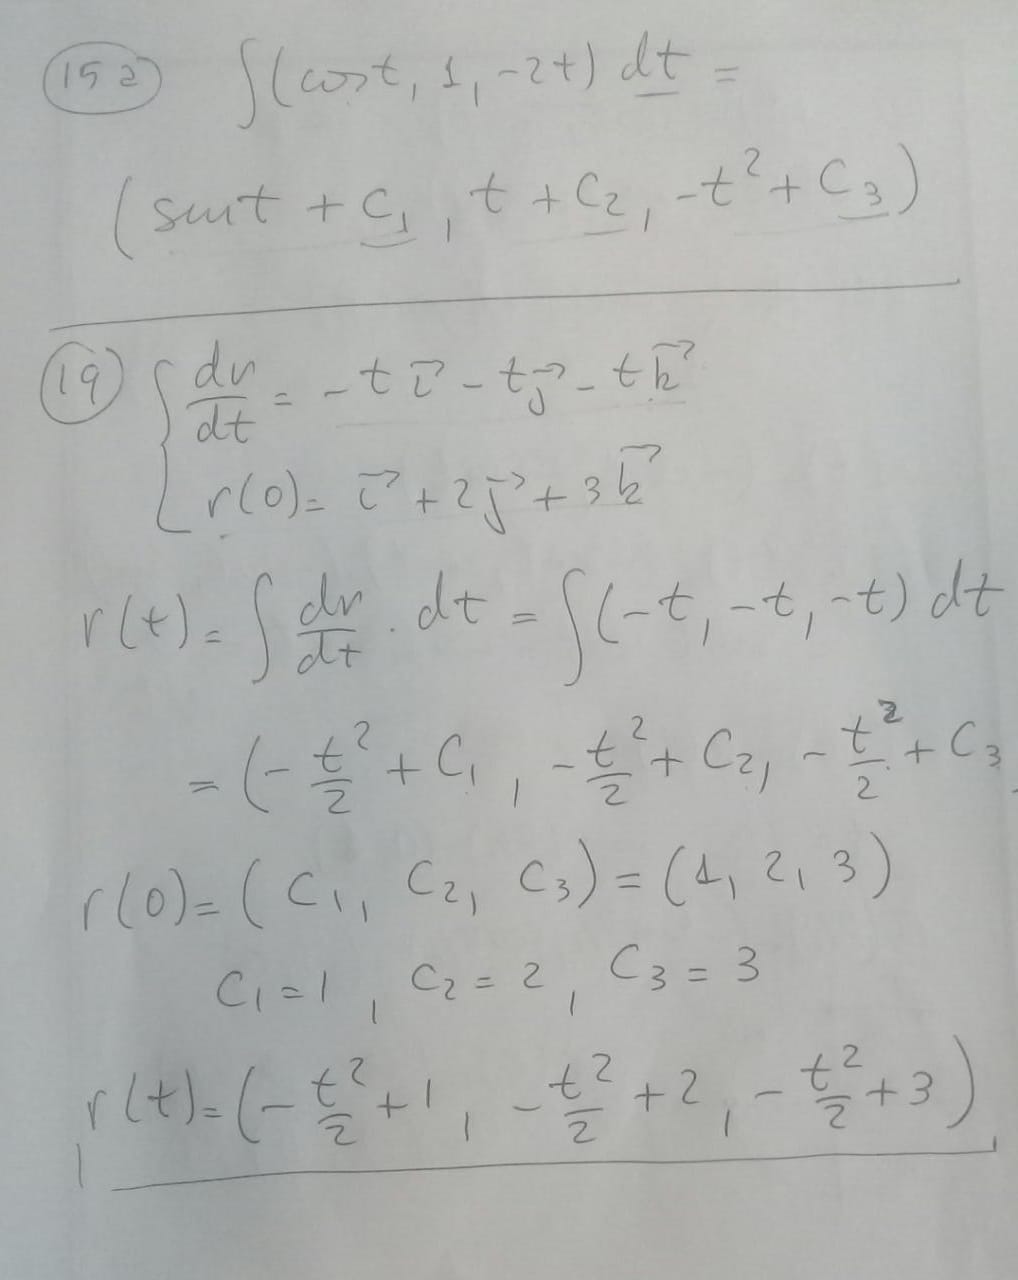 15a ∫(cost, 1, -2t) dt =
(sint + C₁, t + C₂, -t² + C₃)
19 { dr/dt = -t i⃗ - t j⃗ - t k⃗
r(0) = i⃗ + 2j⃗ + 3k⃗
r(t) = ∫ dr/dt . dt = ∫(-t, -t, -t) dt
= (- t²/2 + C₁, - t²/2 + C₂, - t²/2 + C₃
r(0) = (C₁, C₂, C₃) = (1, 2, 3)
C₁ = 1, C₂ = 2, C₃ = 3
r(t) = (- t²/2 + 1, - t²/2 + 2, - t²/2 + 3)